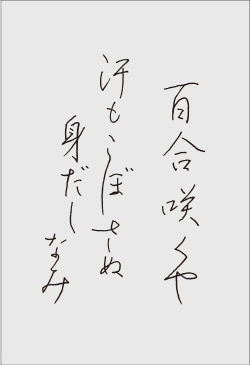 百合咲くや
汗もこぼさぬ
身だしなみ